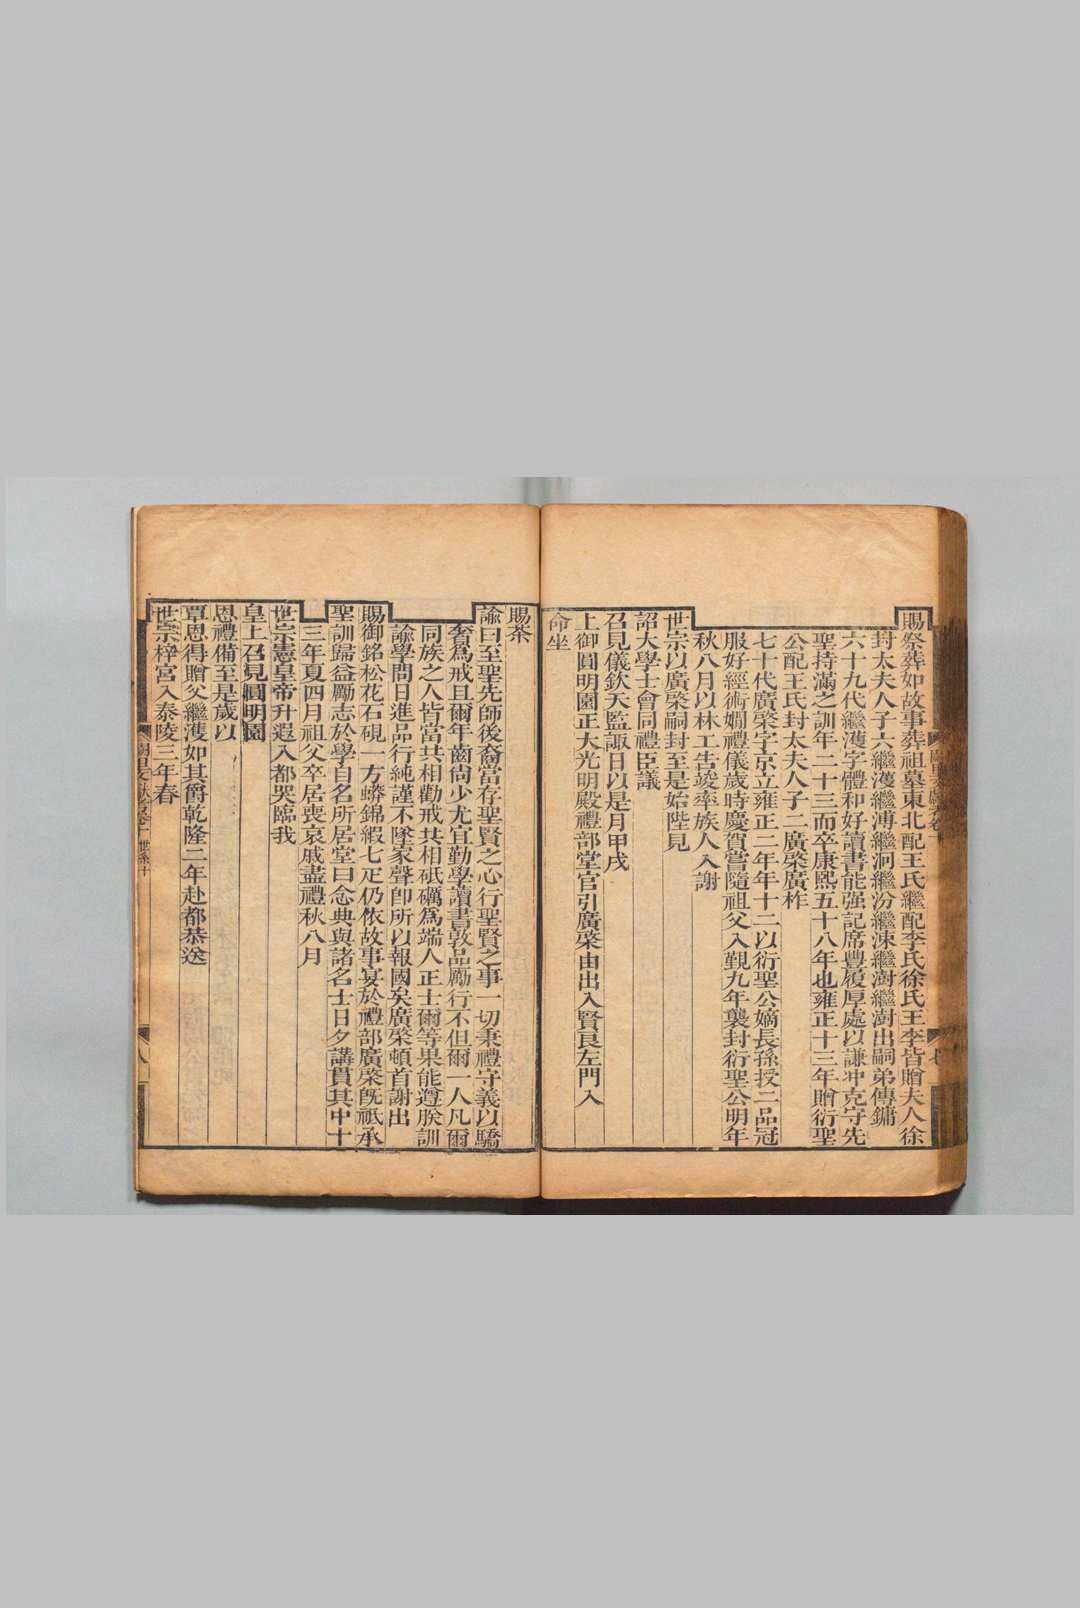 賜祭葬如故事葬祖墓東北配王氏繼配李氏徐氏王李皆贈夫人徐
封太夫人子六繼濩繼溥繼洞繼汾繼涑繼澍繼澍出嗣弟傳鏞
六十九代繼濩字體和好讀書能强記席豐履厚處以謙冲克守先
聖持滿之訓年二十三而卒康熙五十八年也雍正十三年贈衍聖
公配王氏封太夫人子二廣棨廣柞
七十代廣棨字京立雍正二年年十二以衍聖公嫡長孫授二品冠
服好經術嫺禮儀歲時慶賀嘗隨祖父入覲九年襲封衍聖公明年
秋八月以林工告竣率族人入謝
世宗以廣棨嗣封至是始陛見
詔大學士會同禮臣議
召見儀欽天監諏日以是月甲戌
上御圓明園正大光明殿禮部堂官引廣棨由出入賢良左門入
命坐
賜茶
諭曰至聖先師後裔當存聖賢之心行聖賢之事一切秉禮守義以驕
奢爲戒且爾年齒尙少尤宜勤學讀書敦品勵行不但爾一人凡爾
同族之人皆當共相勸戒共相砥礪爲端人正士爾等果能遵朕訓
諭學問日進品行純謹不墜家聲卽所以報國矣廣棨頓首謝出
賜御銘松花石硯一方蟒錦緞七疋仍依故事宴於禮部廣棨旣祗承
聖訓歸益勵志於學自名所居堂曰念典與諸名士日夕講貫其中十
三年夏四月祖父卒居喪哀戚盡禮秋八月
世宗憲皇帝升遐入都哭臨我
皇上召見圓明園
恩禮備至是歲以
覃恩得贈父繼濩如其爵乾隆二年赴都恭送
世宗梓宮入泰陵三年春
八